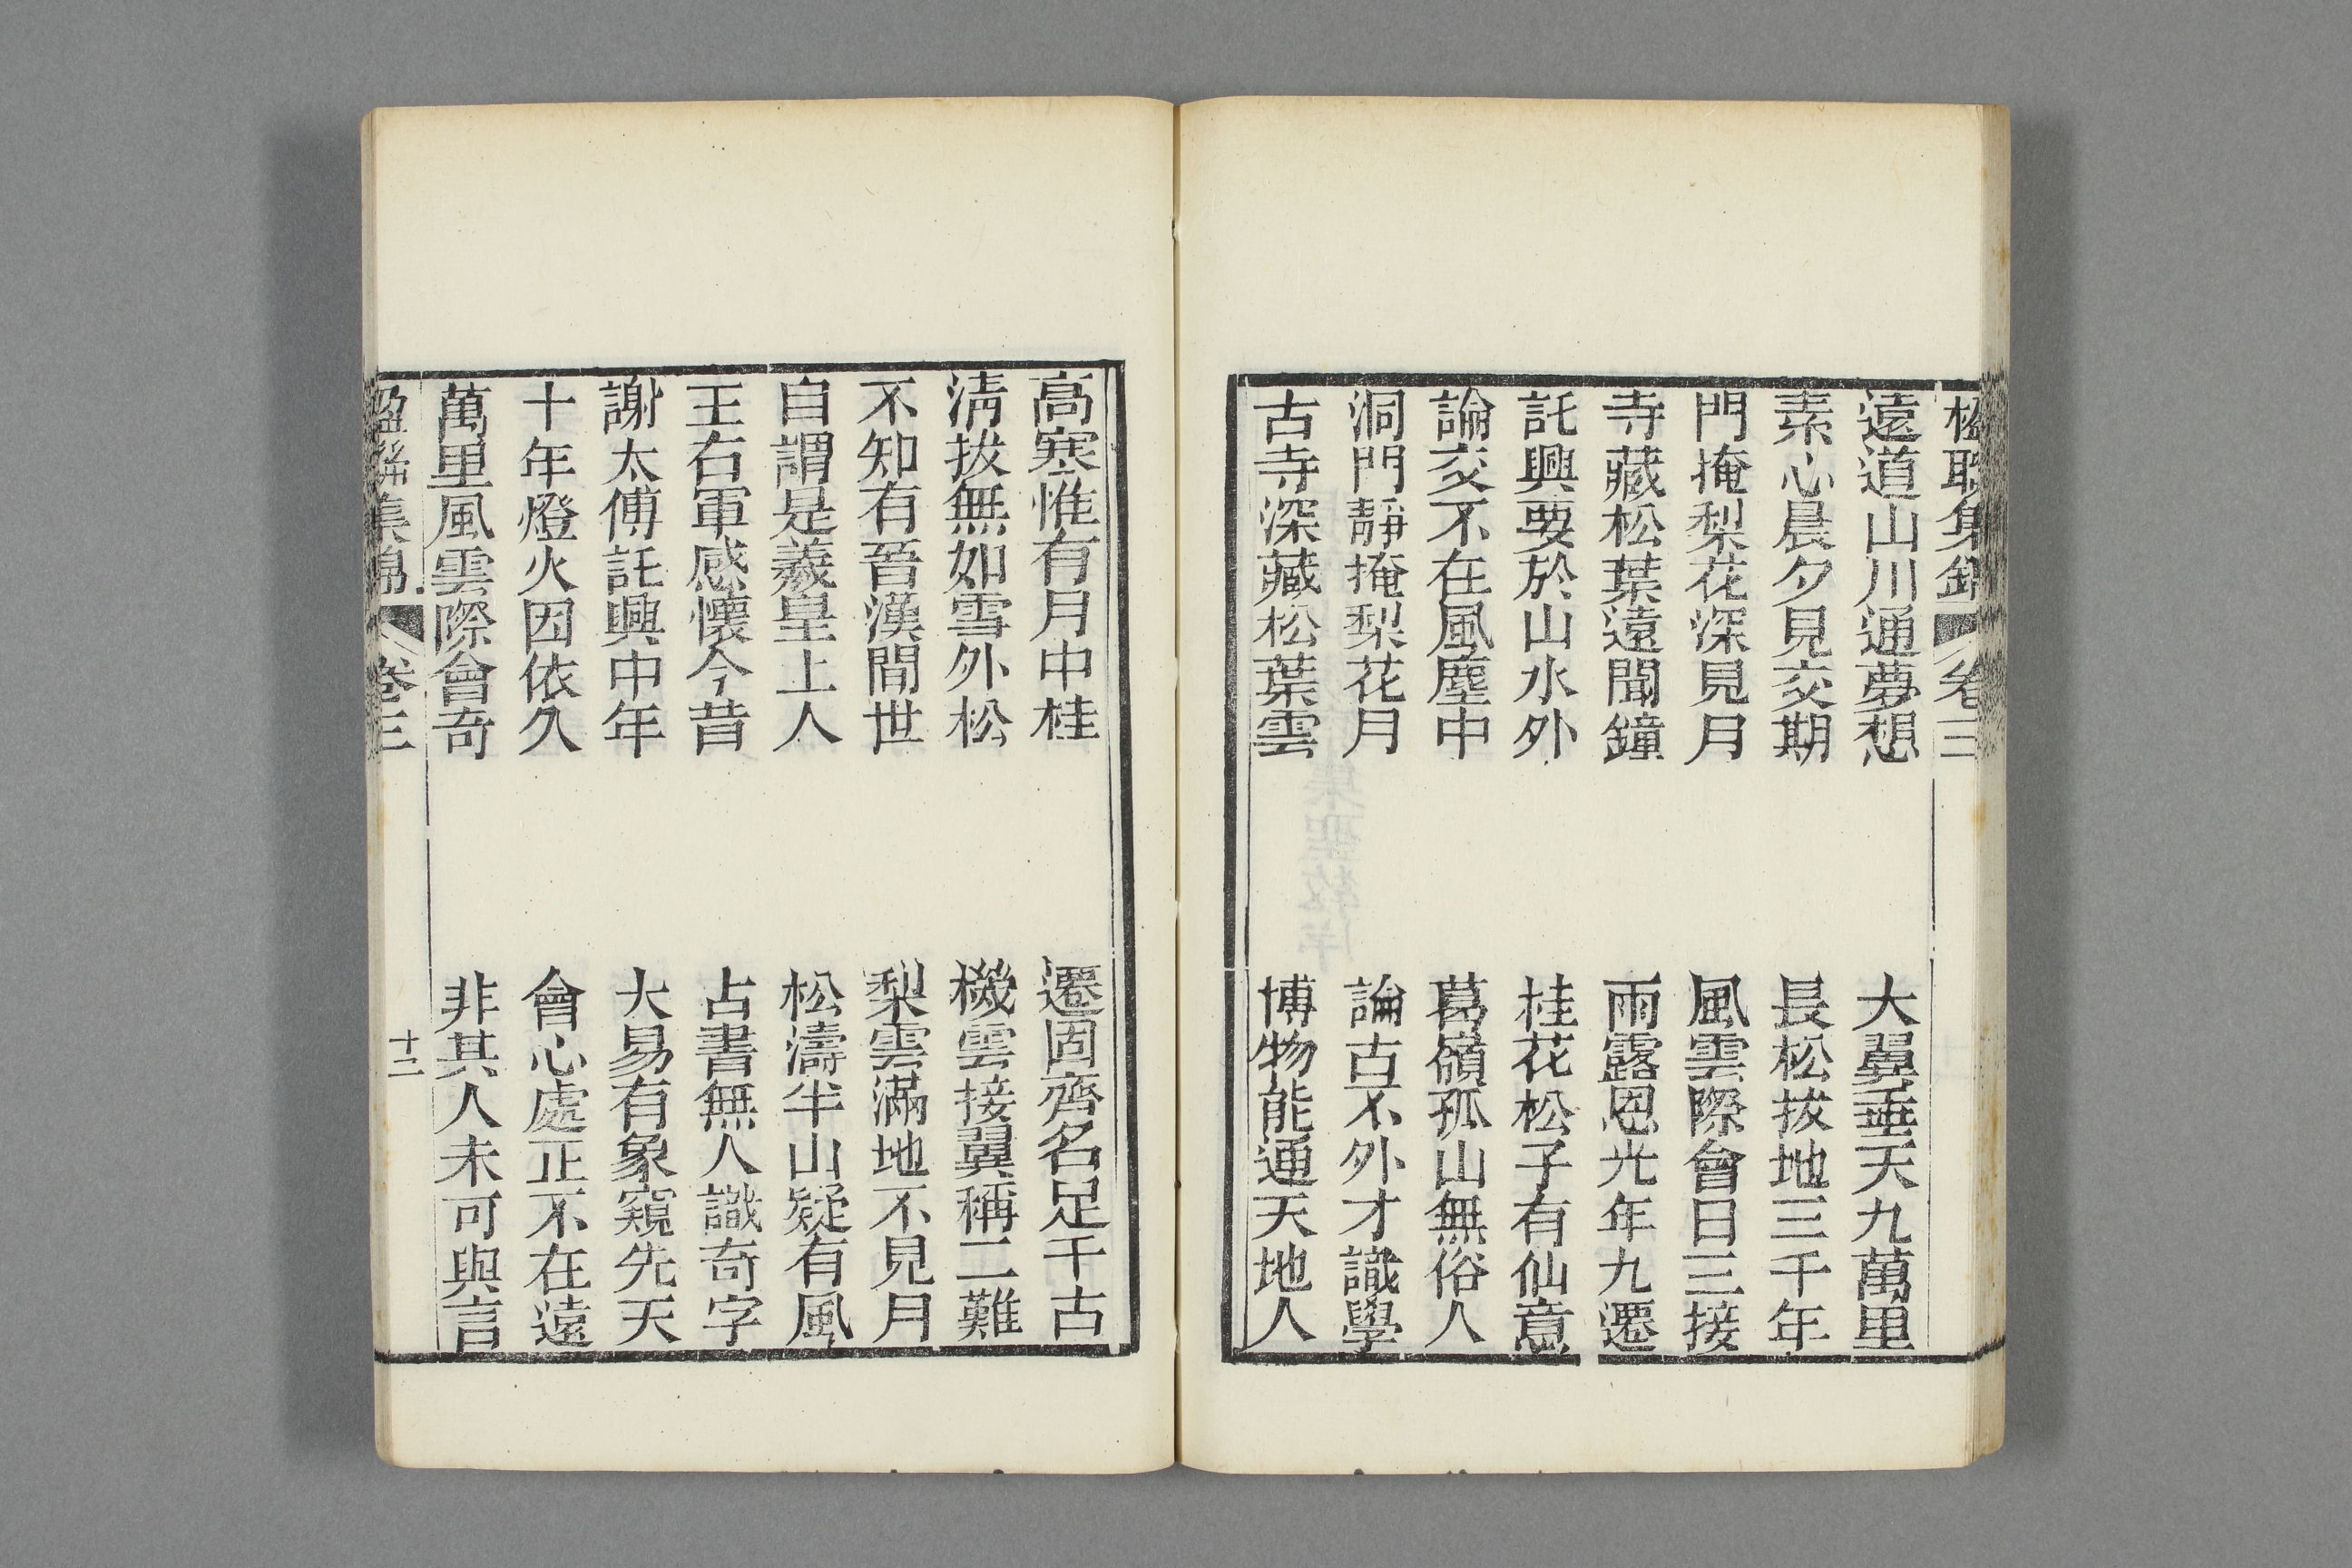 楹聯集錦 卷三
遠道山川通夢想 大翼垂天九萬里
素心晨夕見交期 長松拔地三千年
門掩梨花深見月 風雲際會日三接
寺藏松葉遠聞鐘 雨露恩光年九遷
託興要於山水外 桂花松子有仙意
論交不在風塵中 葛嶺孤山無俗人
洞門靜掩梨花月 論古不外才識學
古寺深藏松葉雲 博物能通天地人
高寒惟有月中桂 遷固齊名足千古
淸拔無如雪外松 機雲接翼稱二難
不知有晉漢間世 梨雲滿地不見月
自謂是羲皇上人 松濤半山疑有風
王右軍感懷今昔 占書無人識奇字
謝太傅託興中年 大易有象窺先天
十年燈火因依久 會心處正不在遠
萬里風雲際會奇 非其人未可與言
楹聯集錦 卷三 十二